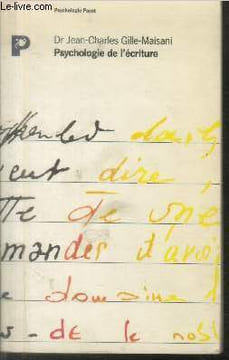 le-livre.com
Psychologie Payot
P
Dr Jean-Charles Gille-Maisani
Psychologie de l'écriture
dai
eut dire,
tte de une
mandes d'avoi
e domaine l
s - de le nobl